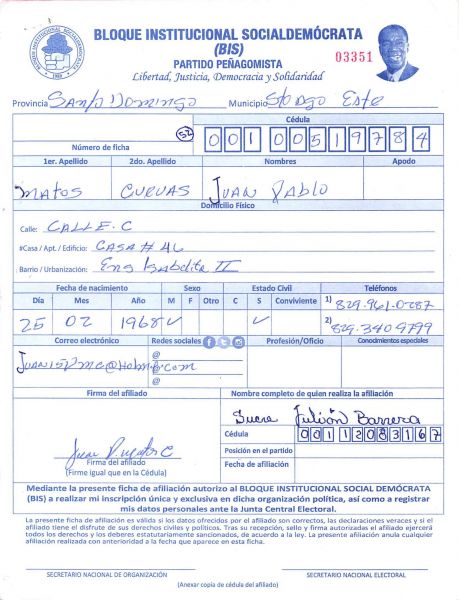 BLOQUE INSTITUCIONAL SOCIALDEMÓCRATA
(BIS)
PARTIDO PEÑAGOMISTA
Libertad, Justicia, Democracia y Solidaridad
03351
Provincia Santo Domingo Municipio Sto Dgo Este
Cédula
52 0 0 1 0 0 5 1 9 7 8 4
Número de ficha
1er. Apellido 2do. Apellido Nombres Apodo
Matos Cuevas Juan Pablo
Domicilio Físico
Calle: CALLE. C
#Casa / Apt. / Edificio: CASA # 46
Barrio / Urbanización: Ens Isabelita II
Fecha de nacimiento Sexo Estado Civil Teléfonos
Día Mes Año M F Otro C S Conviviente 1) 829.961.0287
25 02 1968 ✓ ✓ 2) 829.340 9799
Correo electrónico Redes sociales Profesión/Oficio Conocimientos especiales
@
@
@
Firma del afiliado Nombre completo de quien realiza la afiliación
Sucre Julión Barrera
Cédula 0 0 1 1 2 0 8 3 1 6 7
Posición en el partido
Firma del afiliado Fecha de afiliación
(Firme igual que en la Cédula)
Mediante la presente ficha de afiliación autorizo al BLOQUE INSTITUCIONAL SOCIAL DEMÓCRATA
(BIS) a realizar mi inscripción única y exclusiva en dicha organización política, así como a registrar
mis datos personales ante la Junta Central Electoral.
La presente ficha de afiliación es válida si los datos ofrecidos por el afiliado son correctos, las declaraciones veraces y si el
afiliado tiene el disfrute de sus derechos civiles y políticos. Tras su recepción, sello y firma autorizados el afiliado ejercerá
todos los derechos y los deberes estatutariamente sancionados, de acuerdo a la ley. La presente afiliación anula cualquier
afiliación realizada con anterioridad a la fecha que aparece en esta ficha.
SECRETARIO NACIONAL DE ORGANIZACIÓN SECRETARIO NACIONAL ELECTORAL
(Anexar copia de cédula del afiliado)